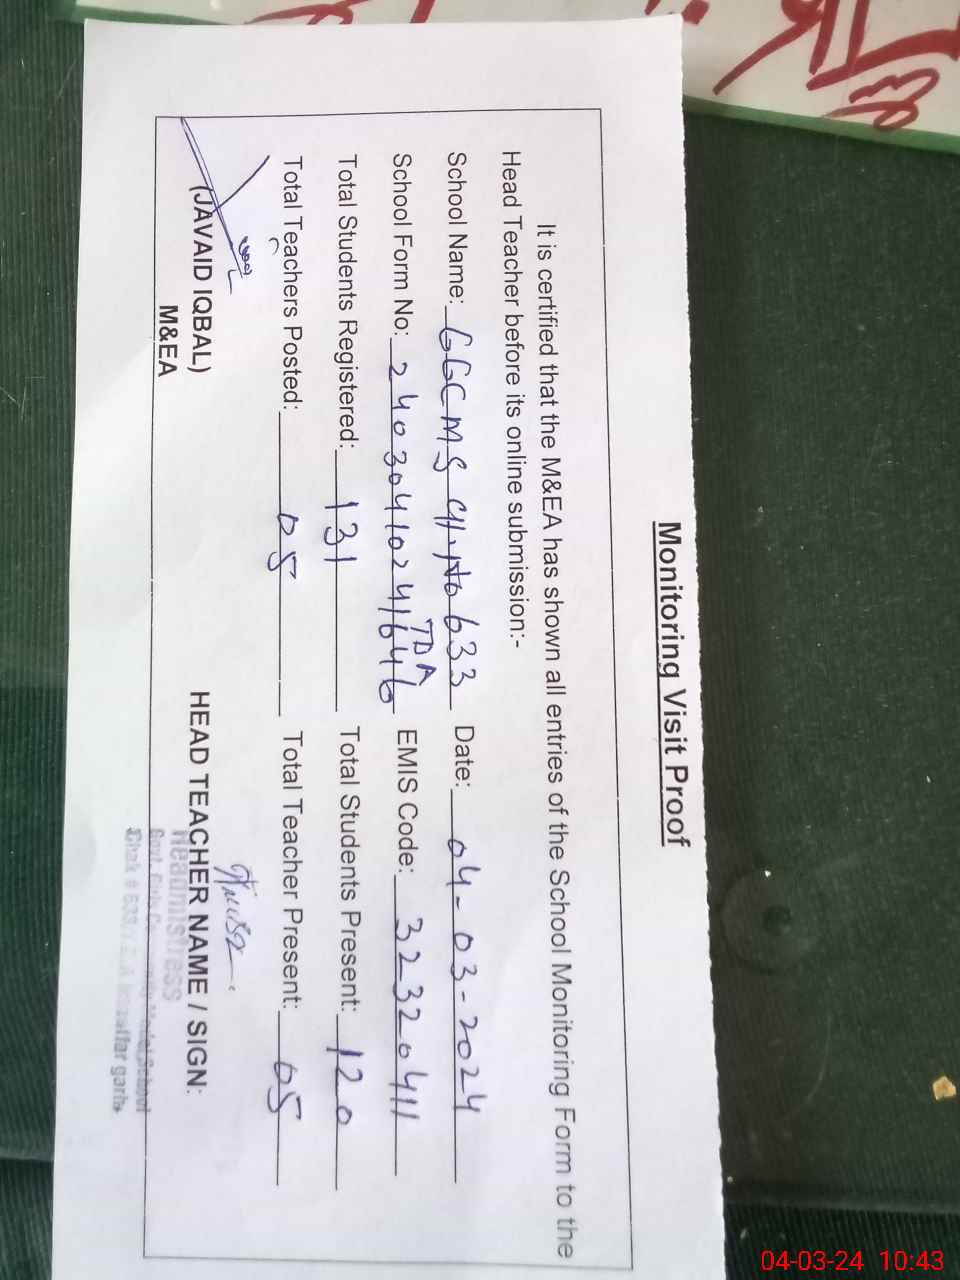 Monitoring Visit Proof
It is certified that the M&EA has shown all entries of the School Monitoring Form to the
Head Teacher before its online submission:-
School Name: GGCMS Ch.No 633 Date: 04-03-2024
TDA
School Form No: 24030410241646 EMIS Code: 32320411
Total Students Registered: 131 Total Students Present: 120
Total Teachers Posted: 05 Total Teacher Present: 05
(JAVAID IQBAL) HEAD TEACHER NAME / SIGN:
M&EA
Headmistress
Govt. Girls Model School
Chak # 633 garh
04-03-24 10:43